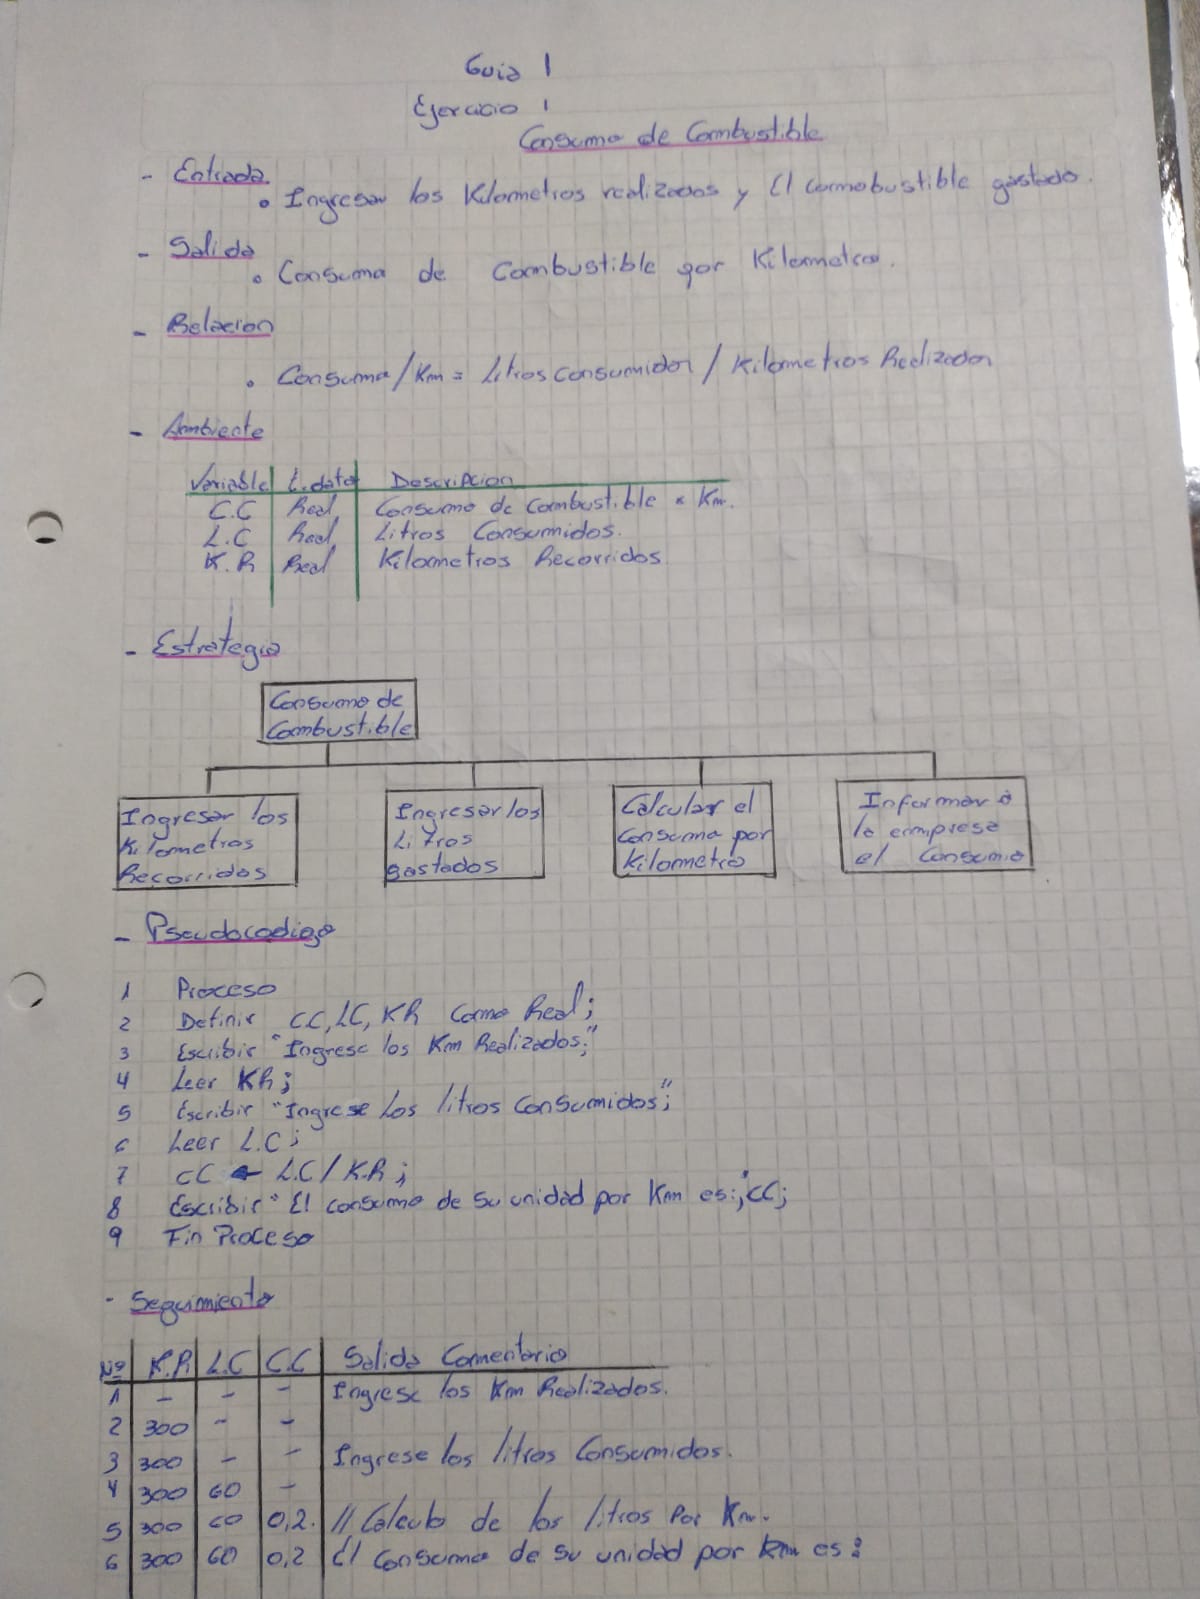 Guia 1
Ejercicio 1
Consumo de Combustible
- Entrada
• Ingresar los Kilometros realizados y El comobustible gastado.
- Salida
• Consumo de Combustible por Kilometro.
- Relacion
• Consumo/Km = Litros consumidos / Kilometros Realizados
- Ambiente
Variable t.dato Descripcion
C.C Real Consumo de Combustible x Km.
L.C Real Litros Consumidos.
K.R Real Kilometros Recorridos
- Estrategia
Consumo de
Combustible
Ingresar los
Kilometros
Recorridos
Ingresar los
Litros
gastados
Calcular el
Consumo por
Kilometro
Informar a
la empresa
el Consumo
- Pseudocodigo
1 Proceso
2 Definir CC, LC, KR Como Real;
3 Escribir "Ingrese los Km Realizados;"
4 Leer KR;
5 Escribir "Ingrese Los litros Consumidos;"
6 Leer L.C;
7 CC ← L.C / K.R;
8 Escribir "El consumo de su unidad por Km es:;"CC;
9 Fin Proceso
- Seguimiento
Nº K.R L.C C.C Salida Comentario
1 - - - Ingrese los Km Realizados.
2 300 - -
3 300 - - Ingrese los litros Consumidos.
4 300 60 -
5 300 60 0,2. // Calculo de los litros Por Km.
6 300 60 0,2 El Consumo de su unidad por Km es: